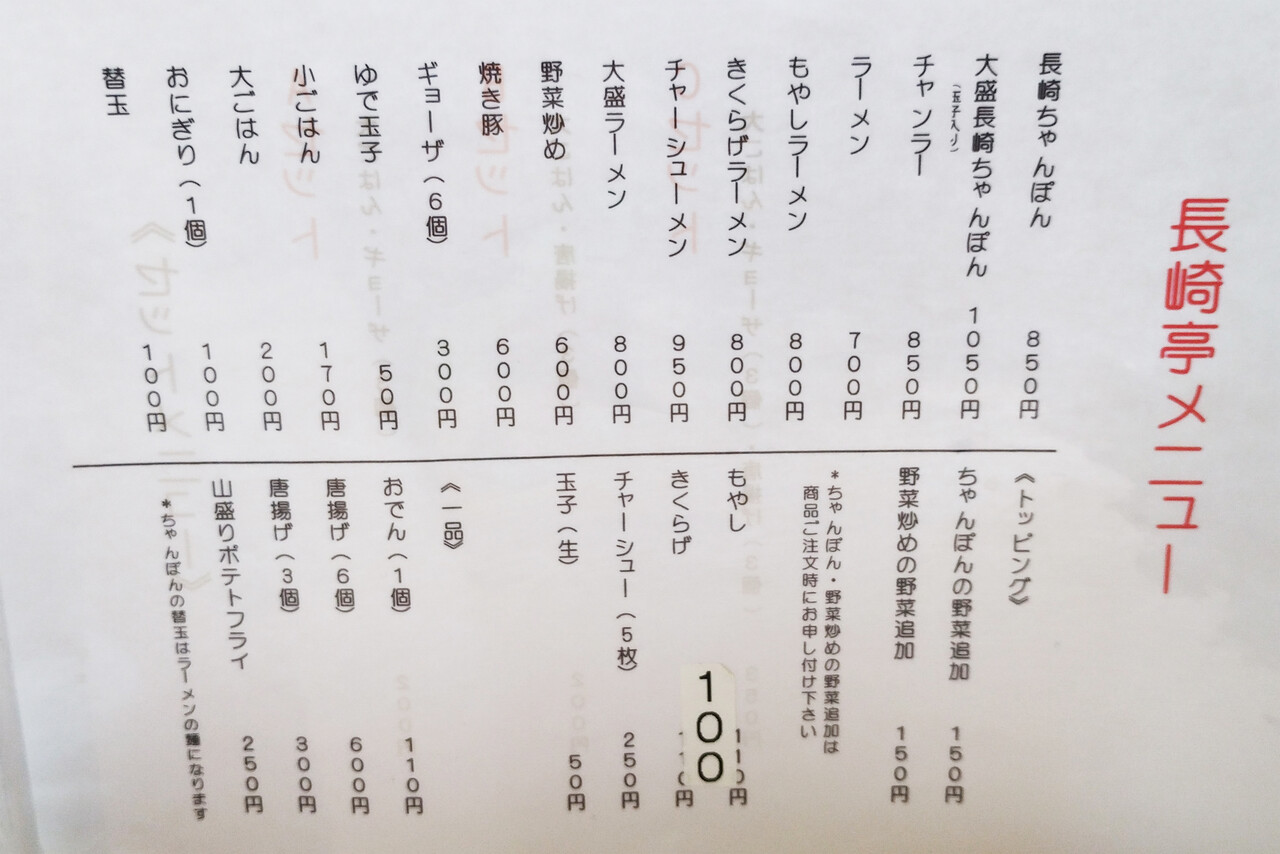 長崎亭メニュー
長崎ちゃんぽん 850円
大盛長崎ちゃんぽん 1050円
(玉子入り)
チャンラー 850円
ラーメン 700円
もやしラーメン 800円
きくらげラーメン 800円
チャーシューメン 950円
大盛ラーメン 800円
野菜炒め 600円
焼き豚 600円
ギョーザ(6個) 300円
ゆで玉子 50円
小ごはん 170円
大ごはん 200円
おにぎり(1個) 100円
替玉 100円
《トッピング》
ちゃんぽんの野菜追加 150円
野菜炒めの野菜追加 150円
*ちゃんぽん・野菜炒めの野菜追加は
商品ご注文時にお申し付け下さい
もやし 110円
きくらげ 110円
100
チャーシュー(5枚) 250円
玉子(生) 50円
《一品》
おでん(1個) 110円
唐揚げ(6個) 600円
唐揚げ(3個) 300円
山盛りポテトフライ 250円
*ちゃんぽんの替玉はラーメンの麺になります